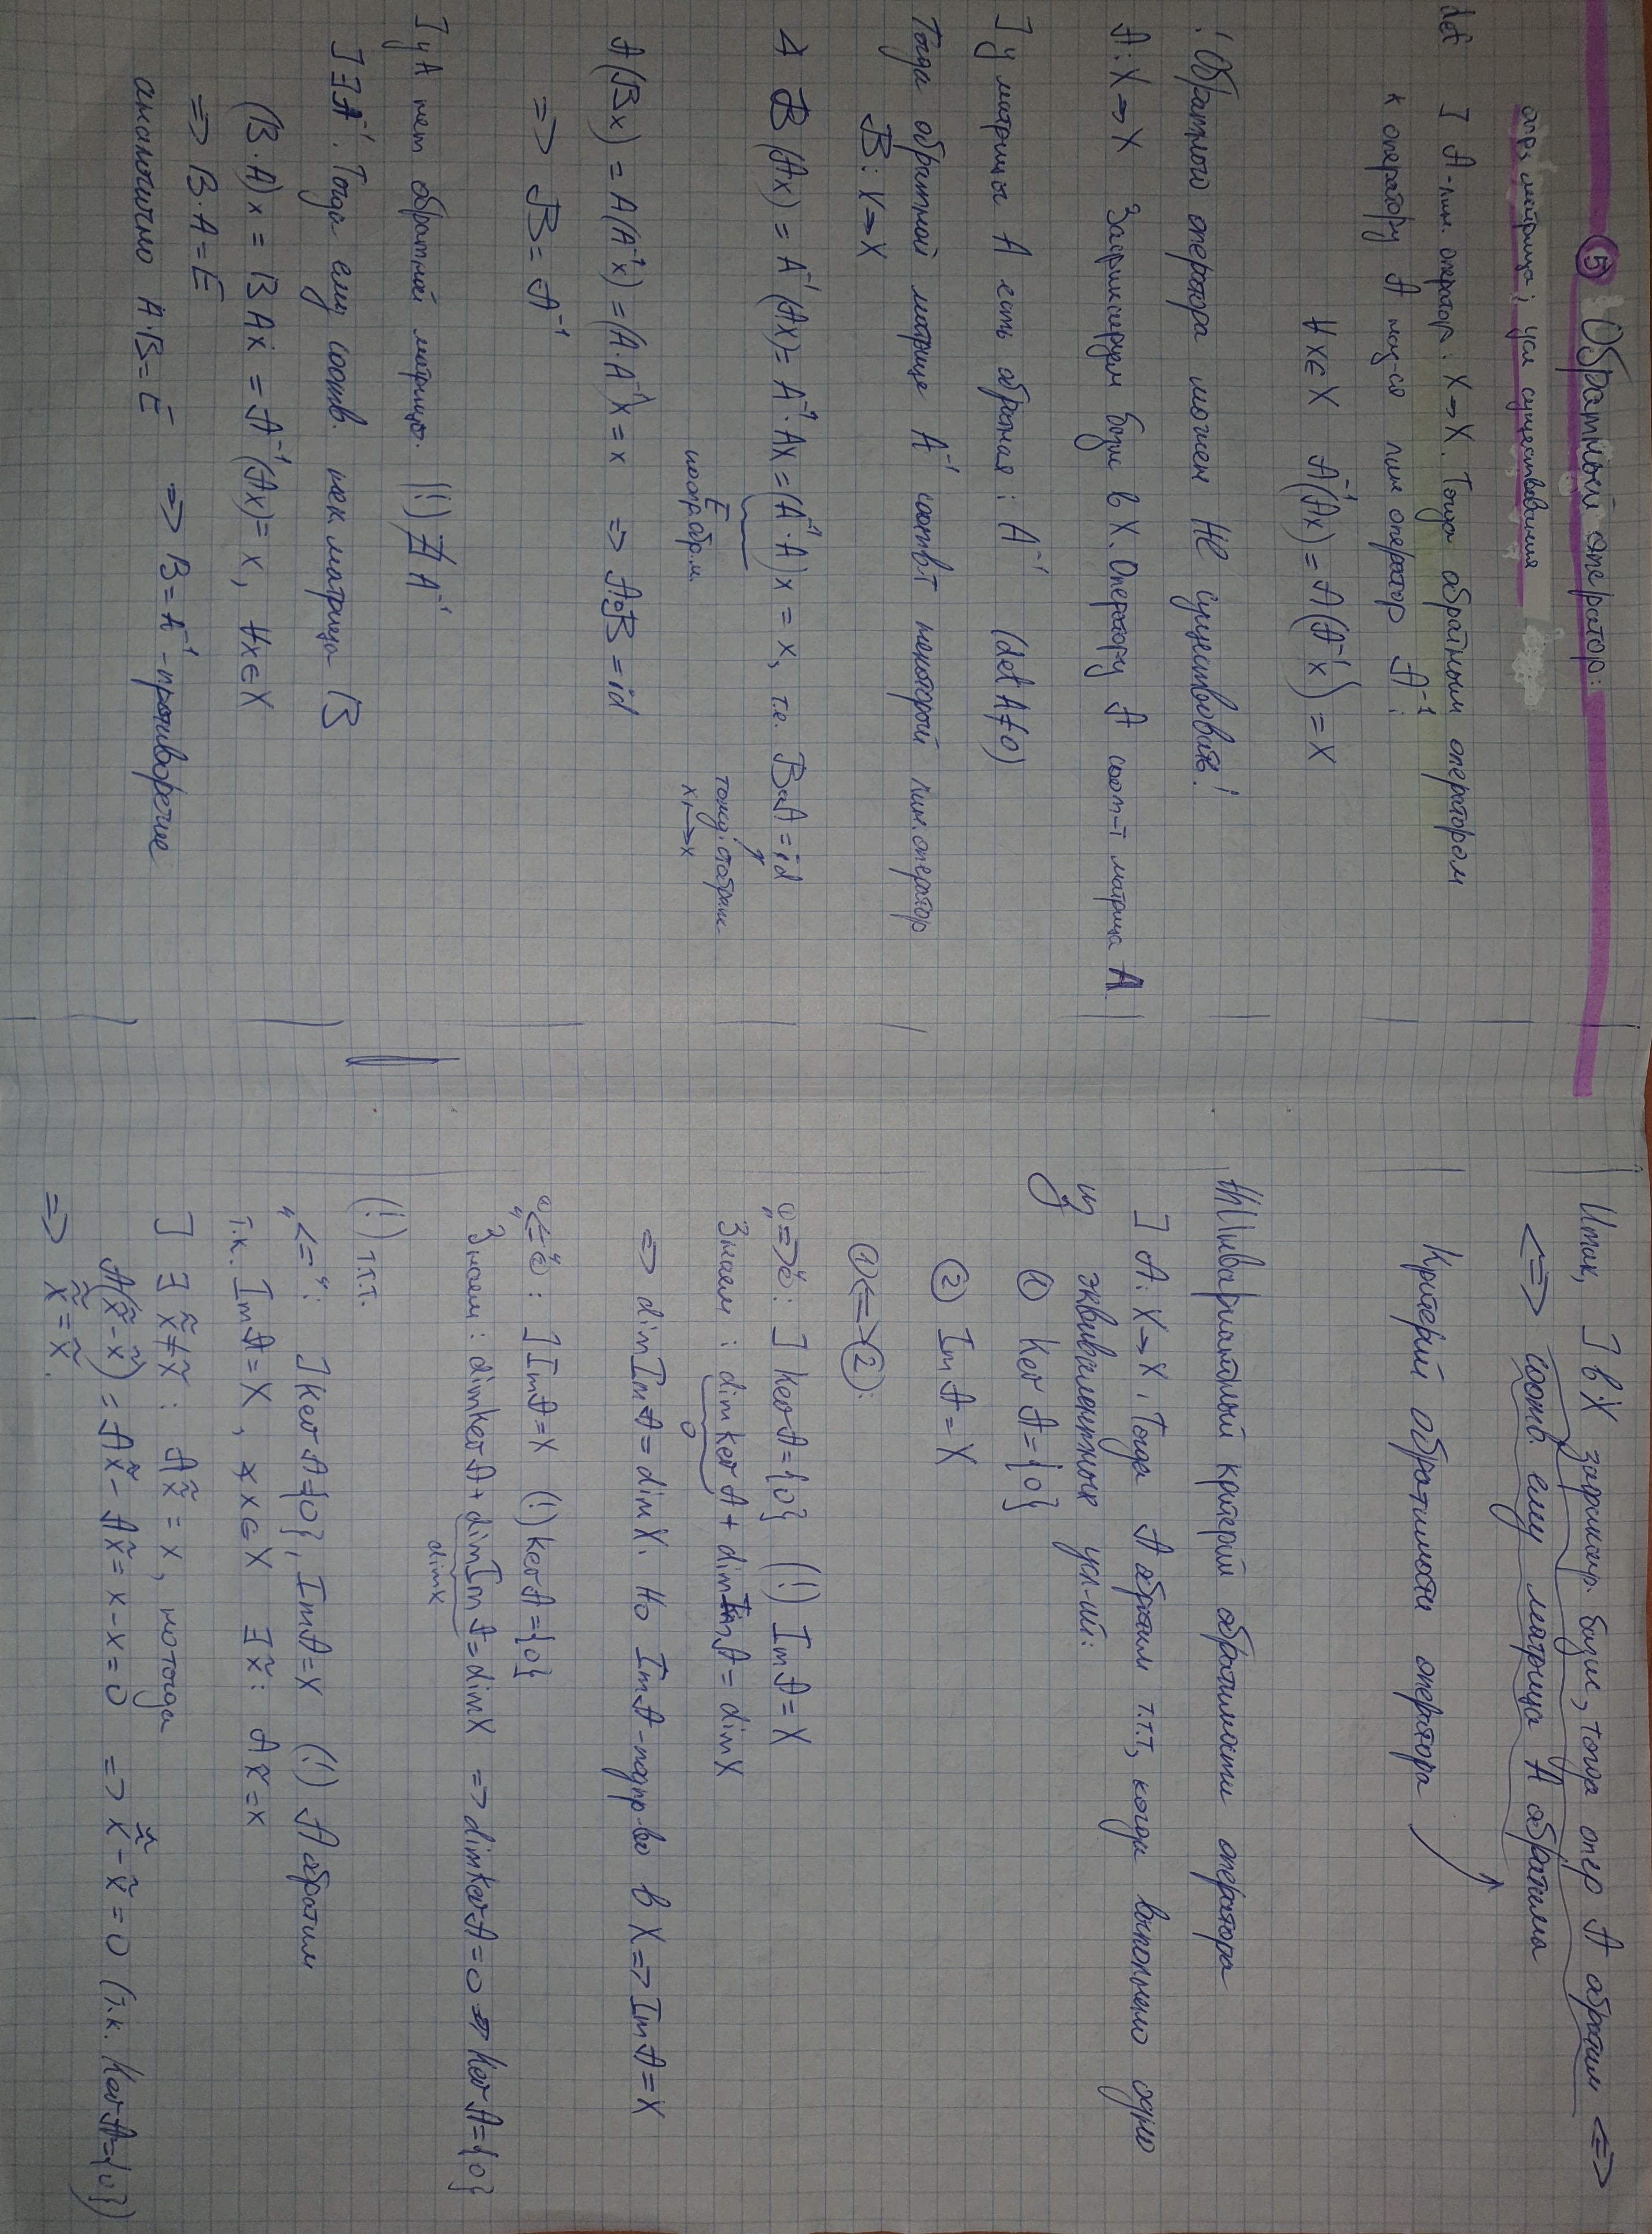 ⑤ Обратный оператор:
опр; матрица; усл существования
def ] 𝒜-лин. оператор: X→X. Тогда обратным оператором
к оператору 𝒜 наз-ся лин оператор 𝒜⁻¹:
∀x∈X 𝒜⁻¹(𝒜x) = 𝒜(𝒜⁻¹x) = x
! Обратного оператора может НЕ существовать!
𝒜: X→X Зафиксируем базис в X. Оператору 𝒜 соот-т матрица A
] у матрицы A есть обратная: A⁻¹ (det A≠0)
Тогда обратной матрице A⁻¹ соотв-т некоторый лин. оператор
ℬ: X→X
ℬ(𝒜x) = A⁻¹(Ax) = A⁻¹·Ax = (A⁻¹·A)x = x, т.е. ℬ∘𝒜 = id
E
тожд. отображ-
x↦x
𝒜(ℬx) = A(A⁻¹x) = (A·A⁻¹)x = x ⇒ 𝒜∘ℬ = id
⇒ ℬ = 𝒜⁻¹
] у A нет обратной матрицы. (!) ∄ 𝒜⁻¹
] ∃𝒜⁻¹. Тогда ему соотв. нек. матрица B
(B·A)x = BAx = 𝒜⁻¹(𝒜x) = x, ∀x∈X
⇒ B·A = E
аналогично A·B = E ⇒ B = A⁻¹ - противоречие
Итак, ] в X зафиксир. базис, тогда опер 𝒜 обратим ⇔
⇔ соотв. ему матрица A обратима
Критерий обратимости оператора
th/Инвариантный критерий обратимости оператора
] 𝒜: X→X, Тогда 𝒜 обратим т.т., когда выполнено одно
из эквивалентных усл-ий:
① ker 𝒜 = {0}
② Im 𝒜 = X
①⇔②:
"⇒": ] ker 𝒜 = {0} (!) Im 𝒜 = X
Знаем: dim ker 𝒜 + dim Im 𝒜 = dim X
0
⇒ dim Im 𝒜 = dim X. Но Im 𝒜 - подпр-во в X ⇒ Im 𝒜 = X
"⇐": ] Im 𝒜 = X (!) ker 𝒜 = {0}
Знаем: dim ker 𝒜 + dim Im 𝒜 = dim X ⇒ dim ker 𝒜 = 0 ⇒ ker 𝒜 = {0}
dim X
(!) т.т.
"⇐": ] ker 𝒜 = {0}, Im 𝒜 = X (!) 𝒜 обратим
т.к. Im 𝒜 = X, ∀x∈X ∃x̃: 𝒜x̃ = x
] ∃ x̃̃ ≠ x̃: 𝒜x̃̃ = x, но тогда
𝒜(x̃̃ - x̃) = 𝒜x̃̃ - 𝒜x̃ = x - x = 0 ⇒ x̃̃ - x̃ = 0 (т.к. ker 𝒜 = {0})
⇒ x̃̃ = x̃.